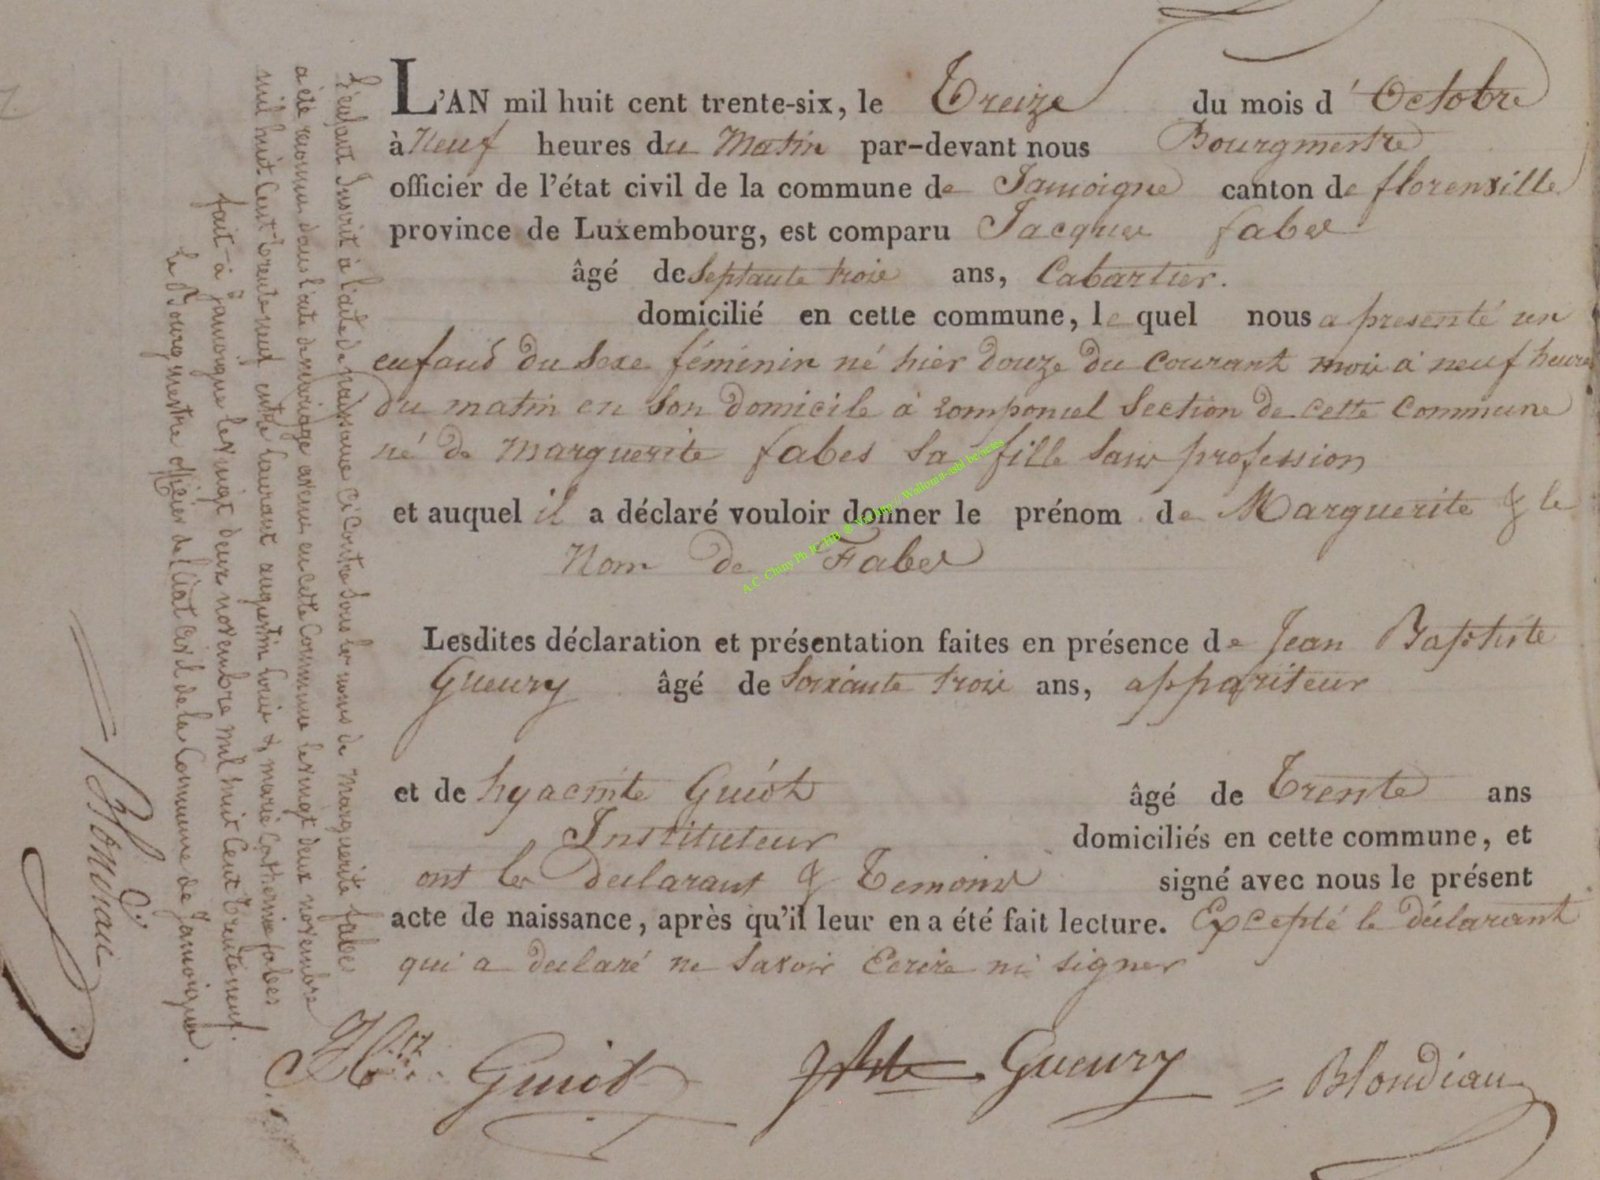 L'AN mil huit cent trente-six, le Treize du mois d'Octobre
à Neuf heures du Matin par-devant nous Bourgmestre
officier de l'état civil de la commune de Jamoigne canton de florenville
province de Luxembourg, est comparu Jacques faber
âgé de septante trois ans, Cabartier.
domicilié en cette commune, le quel nous a presenté un
enfand du sexe féminin né hier douze du courant mois à neuf heures
du matin en son domicile à romponcel Section de cette Commune
né de Marguerite faber sa fille sans profession
et auquel il a déclaré vouloir donner le prénom de Marguerite & le
Nom de Faber
Lesdites déclaration et présentation faites en présence de Jean Baptiste
Gueury âgé de soixante trois ans, appariteur
et de hyacinte Guiot âgé de Trente ans
Instituteur domiciliés en cette commune, et
ont les declarant & Temoins signé avec nous le présent
acte de naissance, après qu'il leur en a été fait lecture. Excepté le déclarant
qui a declaré ne savoir Ecrire ni signer
Guiot Gueury Blondiau
L'enfant Inscrit à l'acte de naissance Ci Contre sous les noms de Marguerite faber
a été reconnu dans l'acte de mariage avenu en cette Commune le vingt deux novembre
mil huit Cent trente neuf entre laurant augustin & marie Catherine faber
fait à Jamoigne le vingt deux novembre mil huit Cent trente neuf.
le Bourgmestre officier de l'état civil de la Commune de Jamoigne.
Blondiau